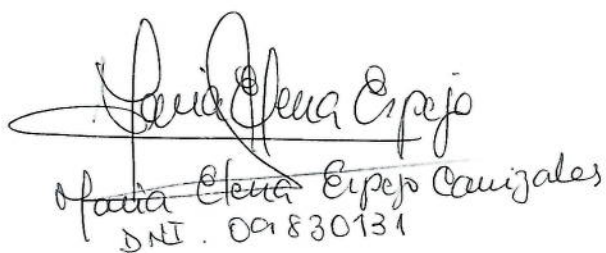 Maria Elena Espejo
Maria Elena Espejo Canizales
DNI. 09830131